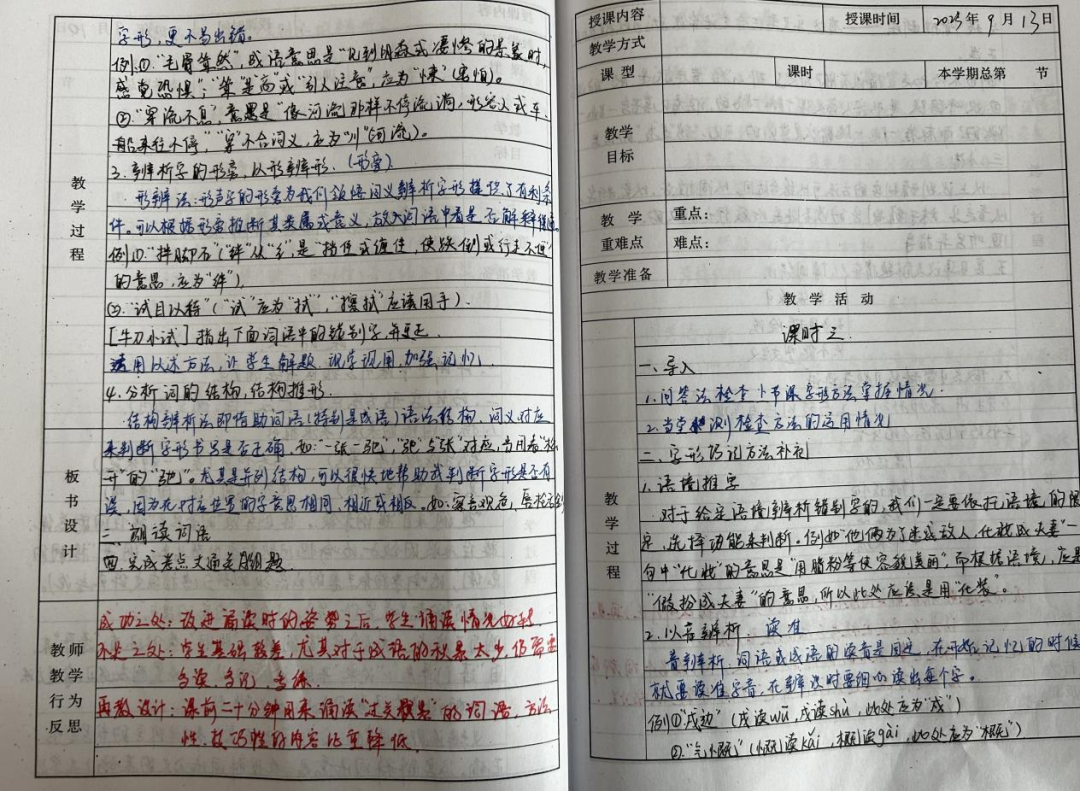 字形,更不易出错。
例①"毛骨耸然",成语意思是"见到阴森或凄惨的景象时,
感觉恐惧";"耸"是高"或"引人注意",应为"悚"(害怕)。
②."穿流不息",意思是"像河流那样不停流淌,形容人或车、
船来行不停","穿"不合词义,应为"川"(河流)。
3.辨析字的形旁,从形辨形.(形旁)
形辨法:形声字的形旁为我们领悟词义辨析字形提供了有利条
件。可以根据形旁推断其类属或意义,放入词语中看是否解释得通
例①"拌脚石"("绊"从"纟",是"挡住或缠住,使跌倒或行走不便"
的意思,应为"绊")
②."试目以待"("试"应为"拭","擦拭"应该用手).
[牛刀小试]指出下面词语中的错别字,并更正.
适用以述方法,让学生解题.现学现用.加强记忆;
4.分析词的结构,结构推形.
结构辨析法即借助词语(特别是成语)语法结构、词义对应
来判断字形书写是否正确.如:"一张一弛","弛"与"张"对应,当用着"松
开"的"弛"。尤其是并列结构,可以很快地帮助我判断字形是否有
误,因为在对应位置的字意思相同、相近或相反。如:察言观色,
三.朗读词语
四.完成考点大通关题.
教学过程
板书设计
教师教学行为反思
成功之处:改进诵读时的姿势之后,学生诵读情况好转
不足之处:学生基础较差,尤其对于成语的积累太少,仍需要
多读、多记、多练.
再教设计:课前二十分钟用来诵读"过关"的词语,方法
性、技巧性的内容比重降低.
授课内容
授课时间 2025年9月13日
教学方式
课型 课时 本学期总第 节
教学目标
教学重难点 重点:
难点:
教学准备
教学活动
课时三
教学过程
一.导入
1.问答法检查上节课字形方法掌握情况.
2.当堂测检查方法的运用情况
二.字形巧记方法补充
1.语境推字
对于给定语境辨析错别字的,我们一定要依托语境的限
定,选择功能来判断。例如"他俩为了迷惑敌人,化妆成夫妻"一
句中"化妆"的意思是"用脂粉等使容貌美丽",而根据语境,应是
"假扮成夫妻"的意思,所以此处应该是用"化装"。
2.以音辨析.读准
音辨析.词语或成语的读音是固定,在开始记忆的时候
就要读准字音,在辨误时要细心读出每个字。
例①"戍动"(戊读wù,戍读shù,此处应为"戍")
②"气慨"(慨读kǎi,概读gài,此处应为"概")